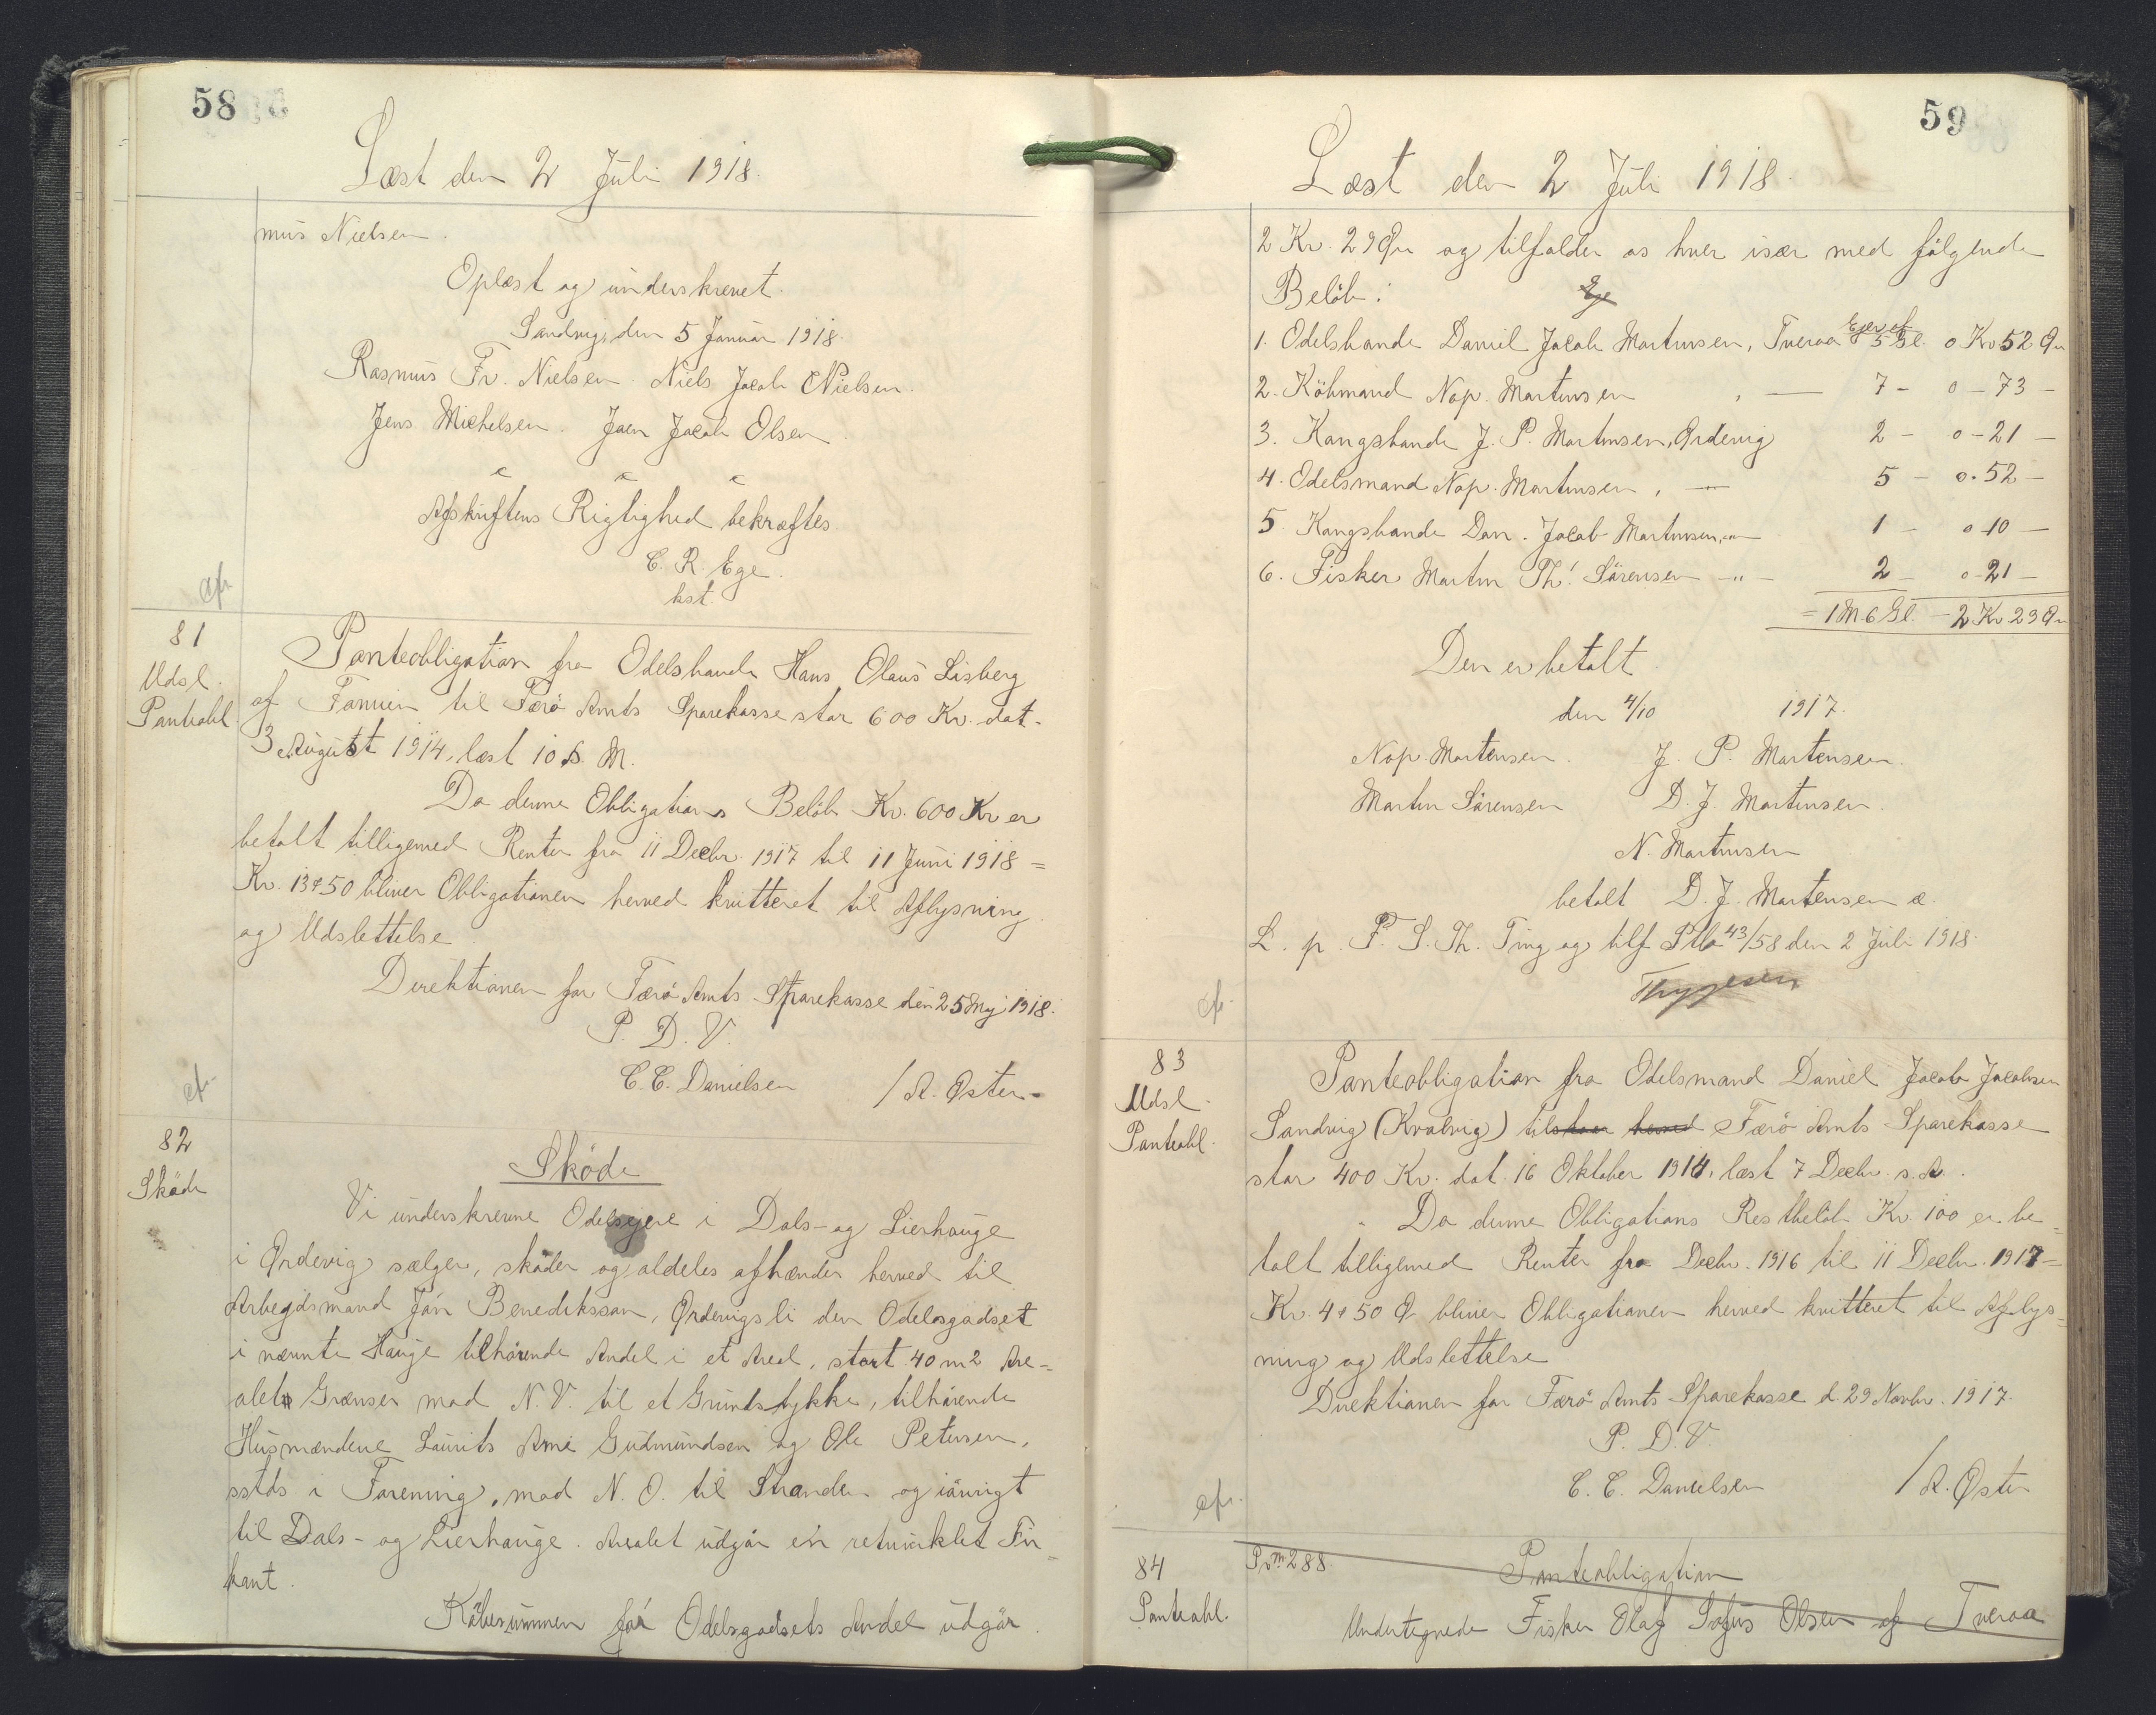 58
Læst den 2 Juli 1918.
mus Nielsen.
Oplæst og underskrevet.
Sandvig, den 5 Januar 1918.
Rasmus Fr. Nielsen. Niels Jacob Nielsen.
Jens Michelsen. Joen Jacob Olsen.
Afskriftens Rigtighed bekræftes.
C. R. Ege.
kst
cfr
81
Udsl.
Panteobl
Panteobligation fra Odelsbonde Hans Olaus Lisberg
af Famien til Færö Amts Sparekasse stor 600 Kr. dat.
3 August 1914, læst 10 s. M.
Da denne Obligations Belöb Kr. 600 Kr er
betalt tilligemed Renter fra 11 Decbr. 1917 til 11 Juni 1918 =
Kr. 13 50 bliver Obligationen herved kvitteret til Aflysning
og Udslettelse
Direktionen for Færö Amts Sparekasse den 25 Maj 1918.
P. D. V.
C. C. Danielsen / A. Öster.
cfr
82
Sköde
Sköde
Vi underskrevne Odelsejere i Dals- og Lierhauge
i Ørdevig sælger, sköder og aldeles afhænder herved til
Arbejdsmand Ján Benediktsson, Ørdevigsli den Odelsgodset
i nævnte Hauge tilhörende Andel i et Areal, stort 40 m2 Are-
alets Grænser mod N. V. til et Grundstykke, tilhörende
Husmændene Laurits Arne Gudmundsen og Ole Petersen,
sstds i Forening, mod N. O. til Stranden og iövrigt
til Dals- og Lierhauge. Arealet udgör en retvinklet Fir=
kant.
Köbesummen for Odelsgodsets Andel udgör
59
Læst den 2 Juli 1918.
2 Kr. 29 Øre og tilfalder os hver især med fölgende
Belöb:
1. Odelsbonde Daniel Jacob Martensen, Tveraa Ejer af 5 Gl. 0 Kr 52 Ør
2. Köbmand Nap. Martensen , — 7 - 0 - 73 -
3. Kongsbonde J. P. Martensen, Ørdevig 2 - 0 - 21 -
4. Odelsmand Nap. Martensen, — 5 - 0. 52 -
5 Kongsbonde Dan. Jacob Martensen, — 1 - 0 10 -
6. Fisker Martin Th. Sörensen - " - 2 - 0 - 21 -
= 1 M 6 Gl. - 2 Kr 29 Ør
Den er betalt.
den 4/10 1917.
Nap. Martensen. J. P. Martensen.
Martin Sörensen D. J. Martensen.
N. Martensen
betalt D. J. Martensen
L. p. F. S. Th. Ting og tilf. Ptb 43/58 den 2 Juli 1918.
Thygesen
cfr.
83
Udsl.
Panteobl.
Panteobligation fra Odelsmand Daniel Jacob Jacobsen
Sandvig (Kvalvig) til Færö Amts Sparekasse
stor 400 Kr. dat. 16 Oktober 1914, læst 7 Decbr. s. A.
Da denne Obligations Restbelöb Kr. 100 er be=
talt tilligemed Renter fra Decbr. 1916 til 11 Decbr. 1917 =
Kr. 4 50 Ø bliver Obligationen herved kvitteret til Aflys=
ning og Udslettelse
Direktionen for Færö Amts Sparekasse d. 29 Novbr. 1917.
P. D. V.
C. C. Danielsen / A. Öster
cfr.
84
Panteobl.
288
Panteobligation
Undertegnede Fisker Olaf Sofus Olsen af Tveraa